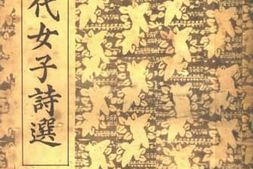 代女子詩選